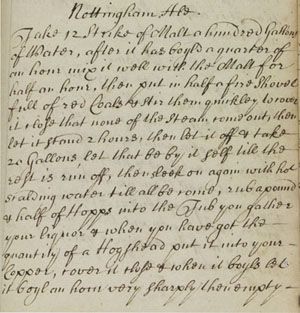 Nottingham Ale.
Take 12 Strike of Malt a hundred Gallons
of Water, after it has boyld a quarter of
an hour mix it well with the Malt for
half an hour, then put in half a fire Shovel
full of red Coals & stir them quickley, & cover
it close that none of the Steam come out, then
let it stand 2 hours, then let it off & take
20 Gallons, let that be by it self till the
rest is run off, then on again with hot
scalding water till all be come, rub a pound
& half of Hopps into the Tub you gather
your liquor & when you have got the
quantity of a Hogshead put it into your
Copper, cover it close & when it boyls let
it boyl an hour very sharply then empty